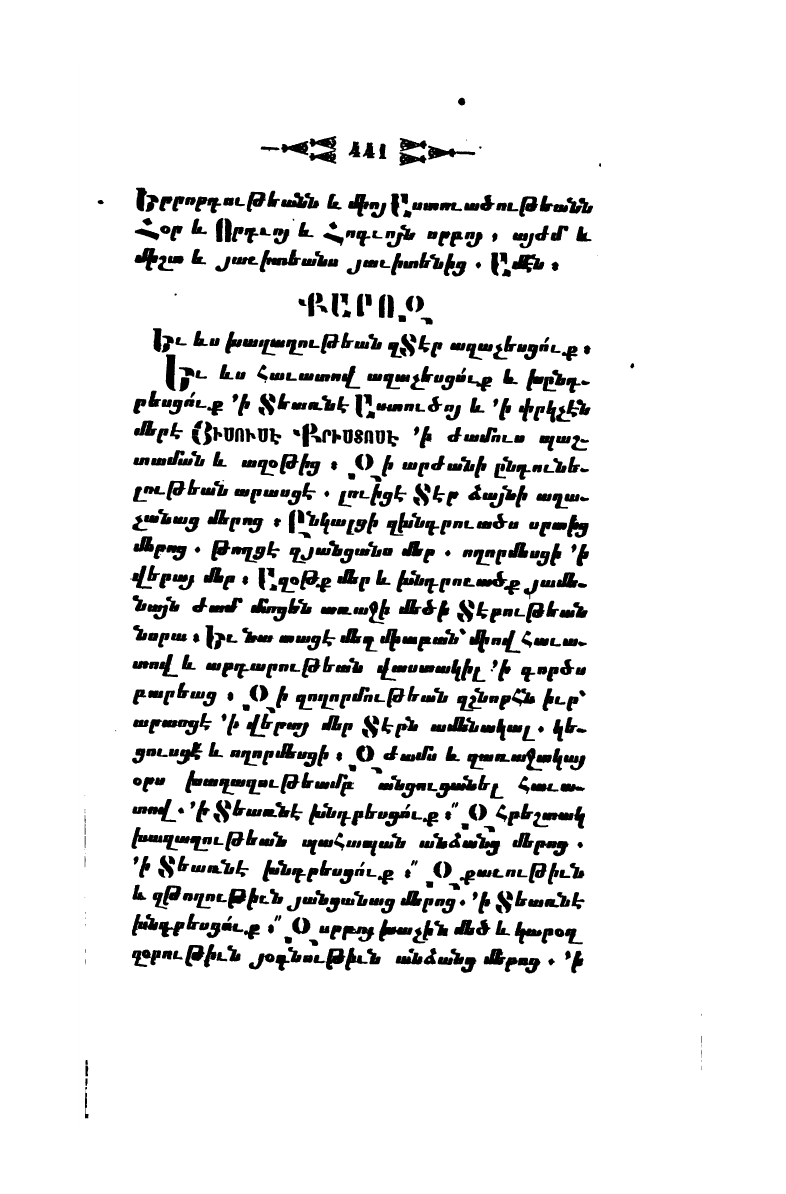 441
Երրորդութեանն և միոյ Աստուածութեանն
Հօր և Որդւոյ և Հոգւոյն սրբոյ , այժմ և
միշտ և յաւիտեանս յաւիտենից . Ամէն ։
ՔԱՐՈԶ
Եւ ևս խաղաղութեան զՏէր աղաչեսցո՛ւք ։
Եւ ևս Հաւատով աղաչեսցո՛ւք և խընդ-
րեսցո՛ւք ՚ի Տեառնէ Աստուծոյ և ՚ի փրկչէն
մերէ ՅԻՍՈՒՍԷ ՔՐԻՍՏՈՍԷ ՚ի ժամուս պաշ-
տաման և աղօթից ։ Զի արժանի ընդունե-
լութեան արասցէ . լուիցէ Տէր ձայնի աղա-
չանաց մերոց ։ Ընկալցի զխնդրուածս սրտից
մերոց . թողցէ զյանցանս մեր . ողորմեսցի ՚ի
վերայ մեր ։ Աղօթք մեր և խնդրուածք յամե-
նայն ժամ մտցեն առաջի մեծի Տէրութեան
նորա ։ Եւ նա տացէ մեզ միաբան՝ միով Հաւա-
տով և արդարութեան վաստակիլ ՚ի գործս
բարեաց ։ Զի զողորմութեան զշնորՀն իւր՝
արասցէ ՚ի վերայ մեր Տէրն ամենակալ . կե-
ցուսցէ և ողորմեսցի ։ Զժամս և զառաջիկայ
օրս խաղաղութեամբ անցուցանել Հաւա-
տով . ՚ի Տեառնէ խնդրեսցո՛ւք ։՞ ԶՀրեշտակ
խաղաղութեան պաՀապան անձանց մերոց .
՚ի Տեառնէ խնդրեսցո՛ւք ։՞ Զքաւութիւն
և զթողութիւն յանցանաց մերոց . ՚ի Տեառնէ
խնդրեսցո՛ւք ։՞ Զսրբոյ խաչին մեծ և կարօղ
զօրութիւն յօգնութիւն անձանց մերոց . ՚ի